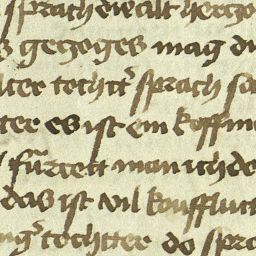 sprach die alt hertzo
s getzoges mag du
lter tochtʼ sprach sa
ter es ist ein koffma
fürcett man ich de
das ist vil koufflut
ngʼ tochtter do spra